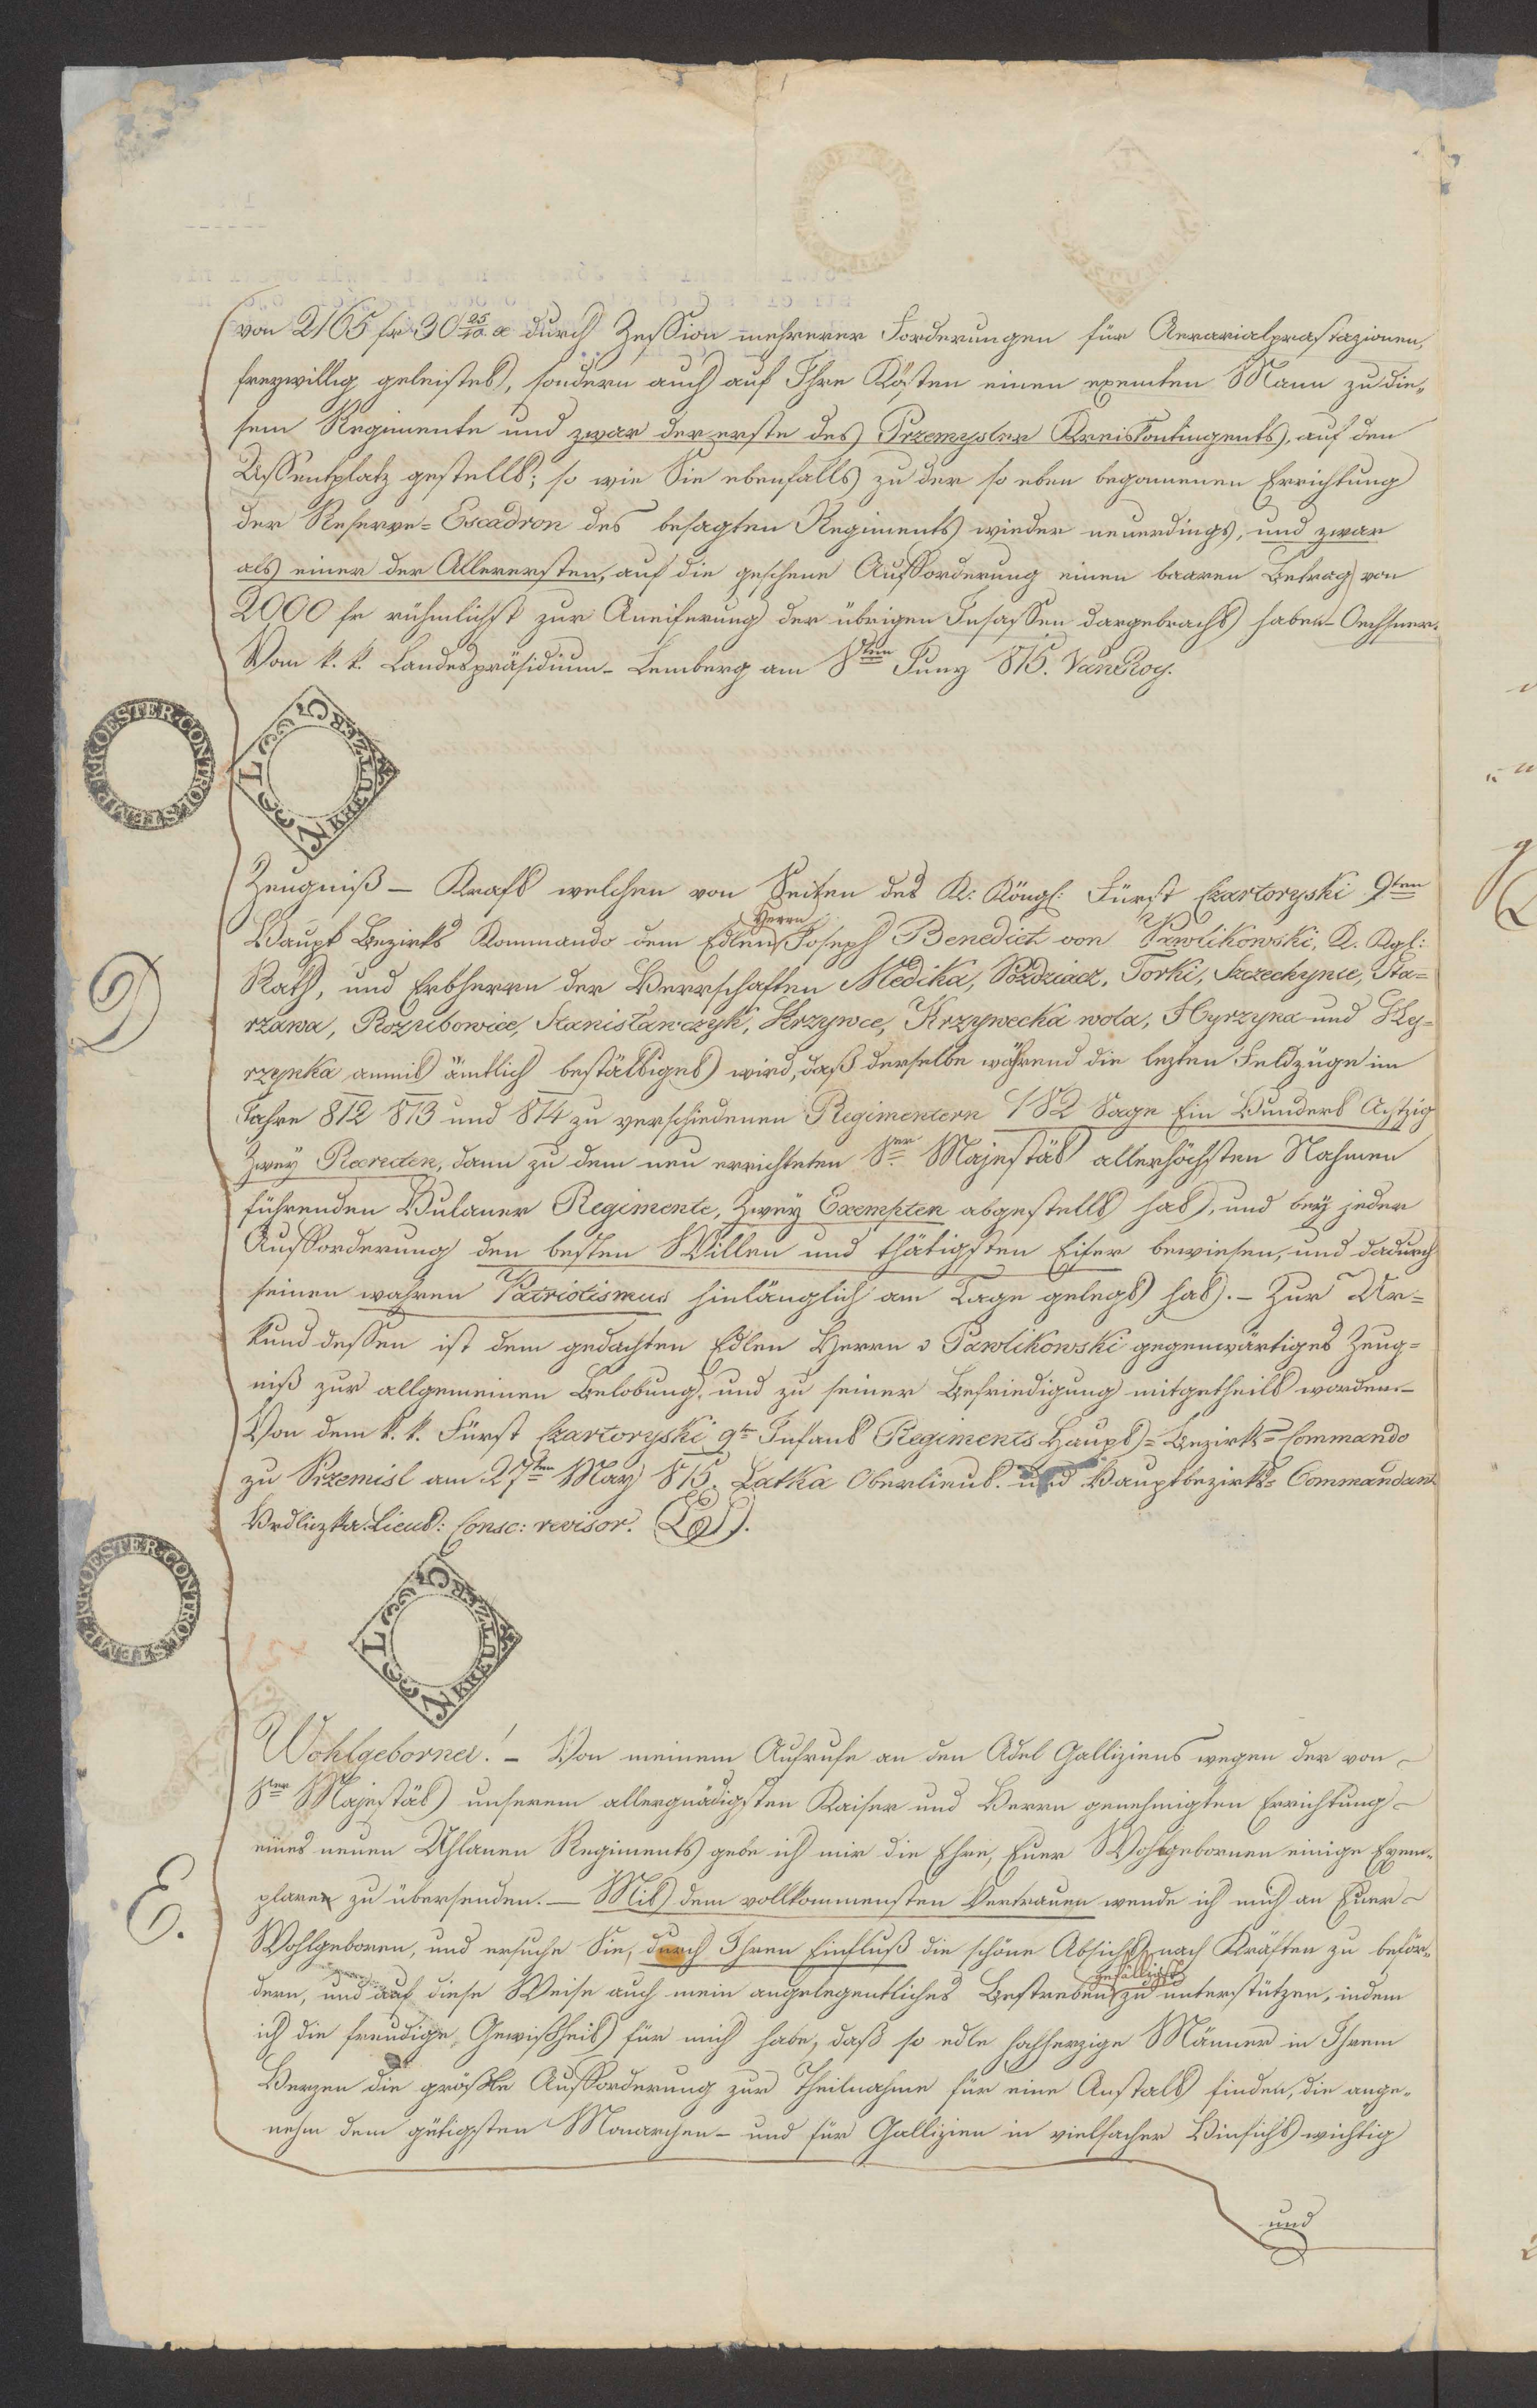 von 2165 fr 30 25/40 x durch Zession mehrerer Forderungen für Aerarialprästazionen,
freywillig geleistet, sondern auch auf Ihre Kösten einen exemten Mann zu die-
sem Regimente und zwar der erste des Przemysler Kreiskontingents, auf den
Assentplatz gestellt; so wie Sie ebenfalls zu der so eben begonnenen Errichtung
der Reserve=Escadron des besagten Regiments wieder neuerdings, und zwar
als einer der Allerersten, auf die geschene Aufforderung einen baaren Betrag von
2000 fr rühmlichst zur Aneiferung der übrigen Insassen dargebracht haben – Oechsner.
Vom k. k. Landespräsidium – Lemberg am 8ten Juny 815. VanRoy.
K K OESTER. CONTROL STEMP.
3 KREUTZER C M
D
Zeugniß – Kraft welchen von Seiten des K: Köngl: Fürst Czartoryski 9ten
Haupt Bezirks Kommando dem Edlen Herrn Joseph Benedict von Pawlikowski, K. Kgl:
Rath, und Erbherrn der Herrschaften Medika, Pozdziacz, Torki, Szczechynie, Sta=
rzawa, Rozubowice, Stanislawczyk, Krzywce, Krzywecka wola, Hyrzyna und Hy=
rzynka anmit ämtlich bestättiget wird, daß derselbe während die lezten Feldzüge im
Jahre 812 813 und 814 zu verschiedenen Regimentern 182 Sage Ein Hundert Achtzig
Zwey Recruten, dann zu dem neu errichteten Sr Majestät allerhöchsten Nahmen
führenden Hulaner Regimente, Zwey Exempten abgestellt hat, und bey jeder
Aufforderung den besten Willen und thätigsten Eifer bewiesen, und dadurch
seinen wahren Patriotismus hinlänglich am Tage gelegt hat. – Zur Ur=
kund dessen ist dem gedachten Edlen Herrn v Pawlikowski gegenwärtiges Zeug=
niß zur allgemeinen Belobung, und zu seiner Befriedigung mitgetheilt worden. –
Von dem k. k. Fürst Czartoryski 9tn Infant Regiments Haupt=Bezirks=Commando
zu Przemisl am 27ten May 815. Latka Oberlieut. und Hauptbezirks=Commandant
Vrdliczka. Lieut: Consc: revisor. (LS).
K K OESTER. CONTROL STEMP.
3 KREUTZER C M
E.
Wohlgeborner! – Von meinem Aufrufe an den Adel Galliziens wegen der von
Sr Majestät unserem allergnädigsten Kaiser und Herrn genehmigten Errichtung
eines neuen Uhlanen Regiments gebe ich mir die Ehre, Euer Wohlgebornen einige Exem-
plaren zu übersenden. – Mit dem vollkommensten Vertrauen wende ich mich an Euer
Wohlgeboren, und ersuche Sie, durch Ihren Einfluß die schöne Absicht nach Kräften zu beför-
dern, und auf diese Weise auch mein angelegentliches Bestreben gefälligst zu unterstützen, indem
ich die freudige Gewißheit für mich habe, daß so edle hochherzige Männer in Ihrem
Herzen die größte Aufforderung zur Theilnahme für eine Anstalt finden, die ange-
nehm dem gütigsten Monarchen – und für Gallizien in vielfacher Hinsicht wichtig
und